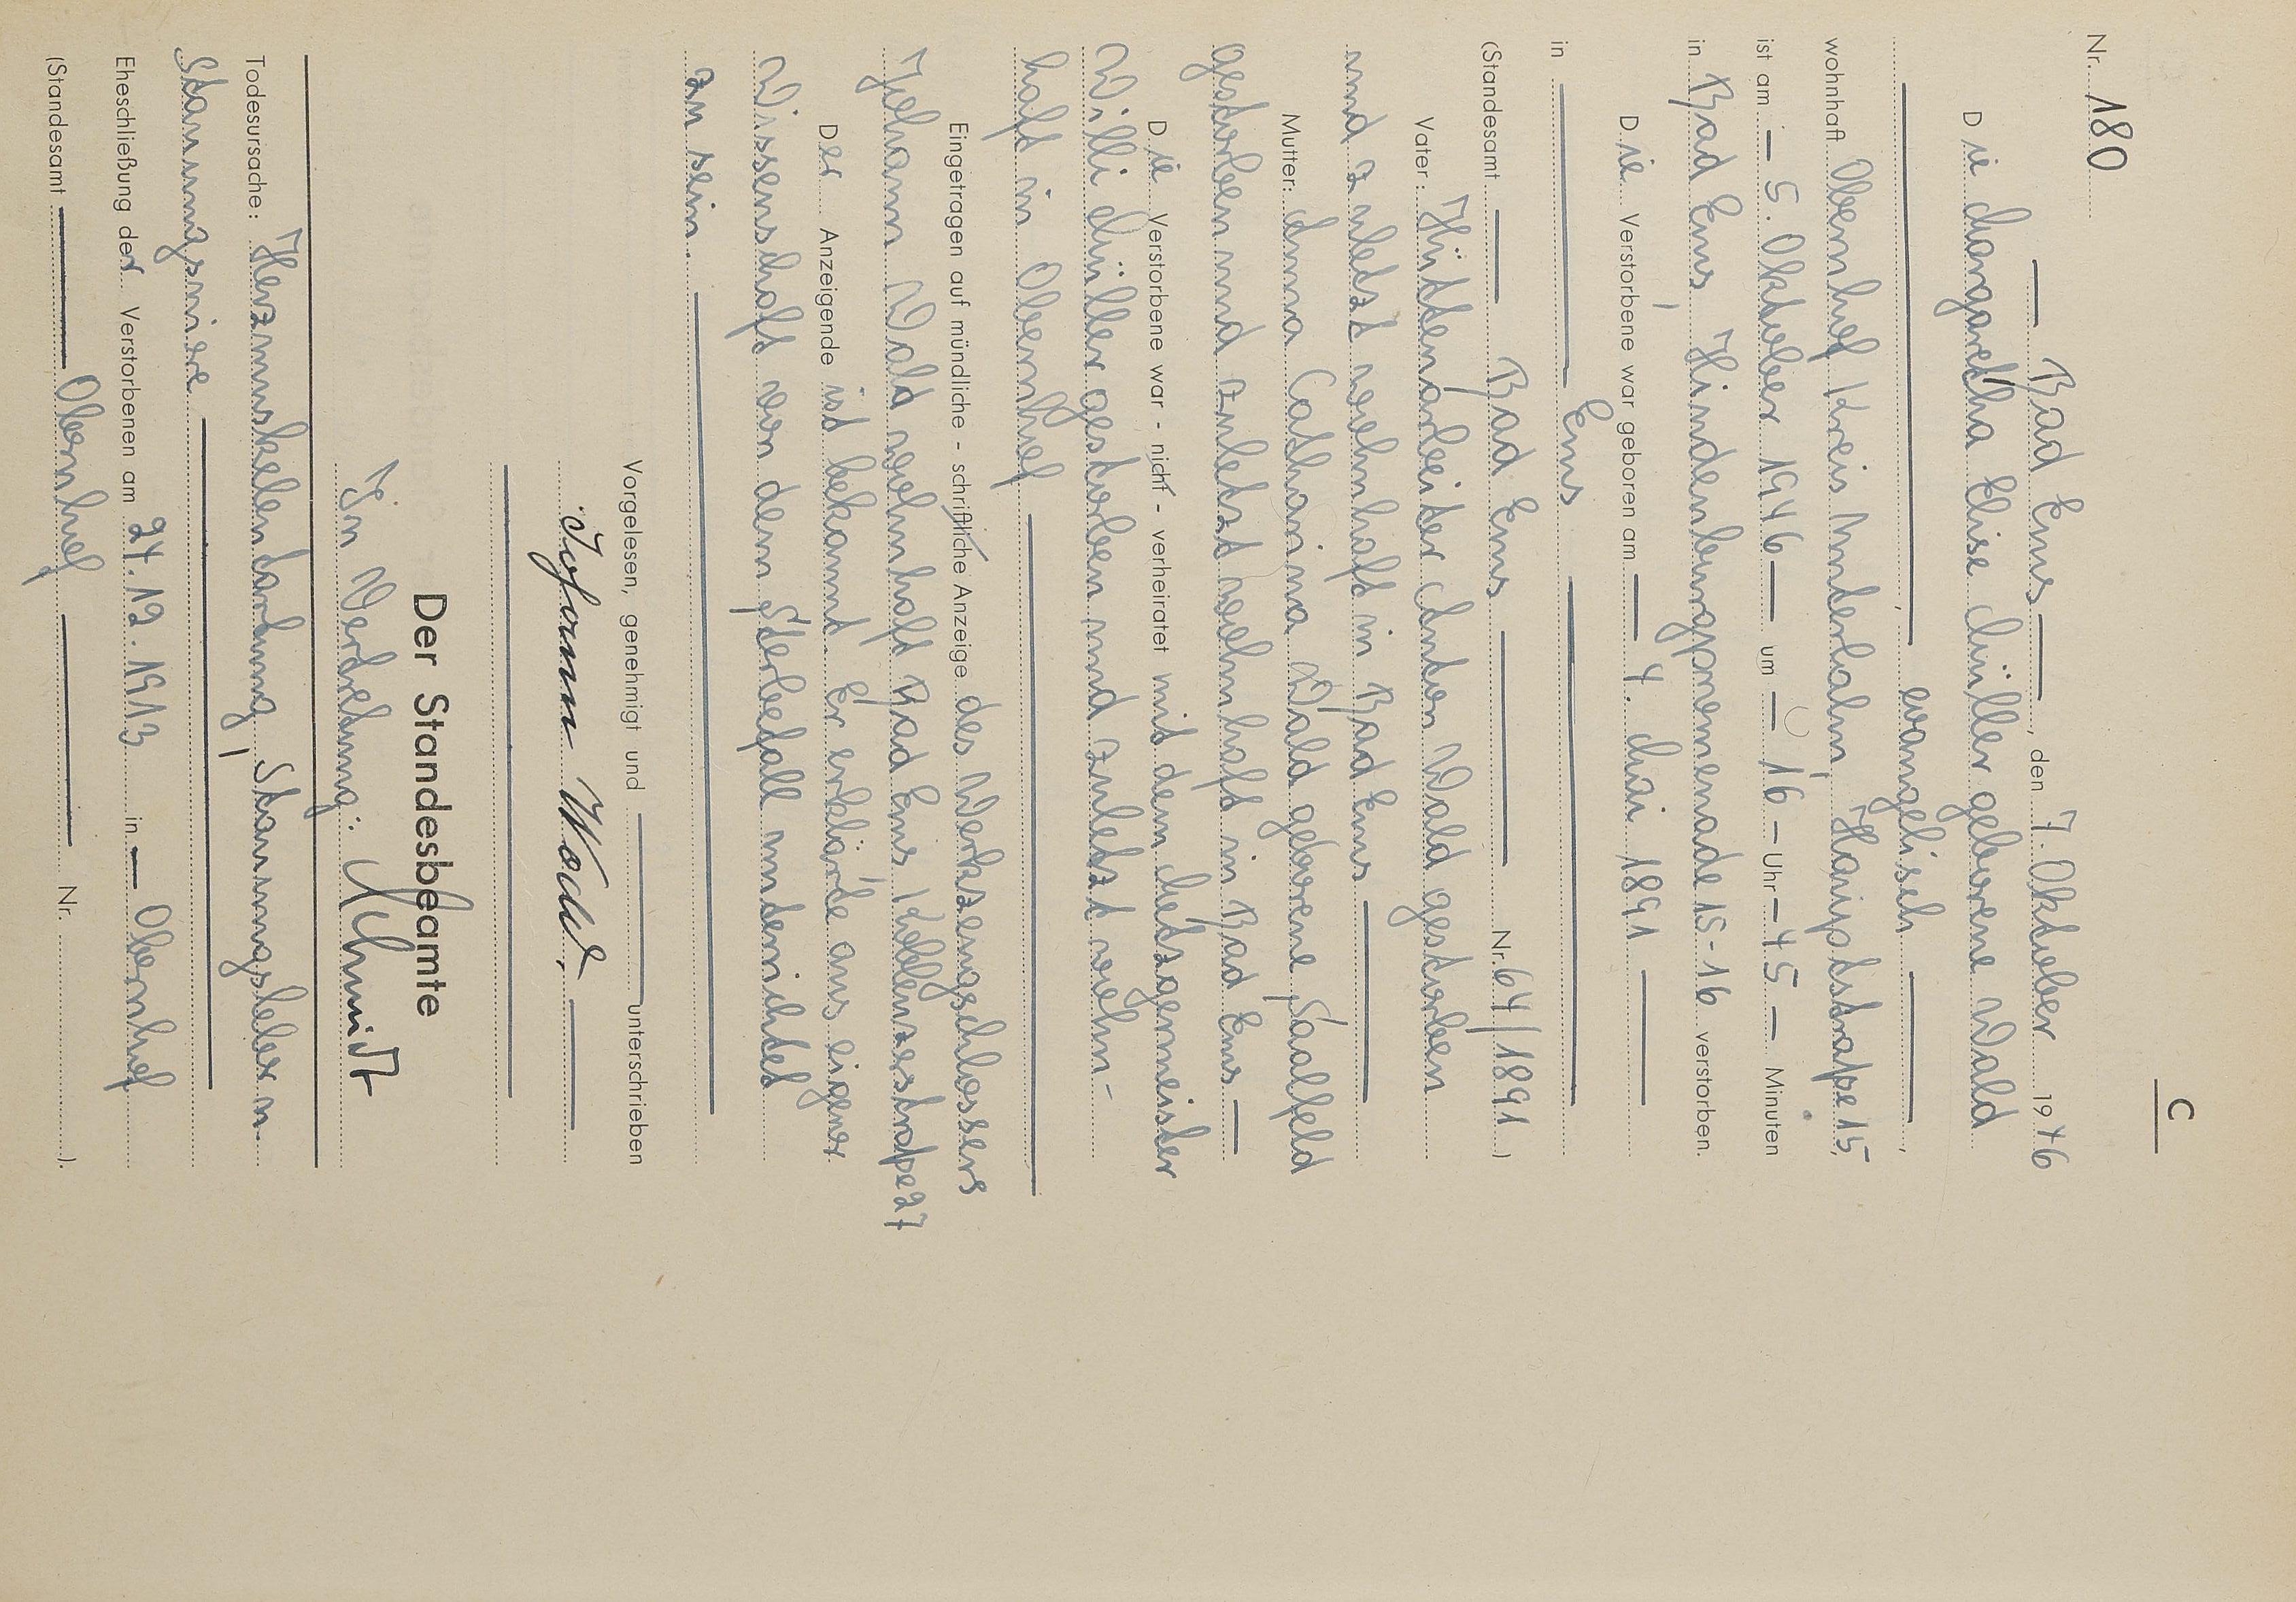 C
Nr. 180
Bad Ems, den 7. Oktober 1946
Die Margaretha Elise Müller geborene Wald
evangelisch,
wohnhaft Obernhof Kreis Unterlahn, Hauptstraße 15,
ist am 5. Oktober 1946 um 16 Uhr 45 Minuten
in Bad Ems, Hindenburgpromenade 15-16 verstorben.
Die Verstorbene war geboren am 4. Mai 1891
in Ems
(Standesamt Bad Ems Nr. 64/1891)
Vater: Hüttenarbeiter Anton Wald gestorben
und zuletzt wohnhaft in Bad Ems
Mutter: Anna Catharina Wald geborene Saalfeld
gestorben und zuletzt wohnhaft in Bad Ems
Die Verstorbene war - nicht - verheiratet mit dem Metzgermeister
Willi Müller gestorben und zuletzt wohn-
haft in Obernhof
Eingetragen auf mündliche - schriftliche Anzeige des Werkzeugschlossers
Johann Wald wohnhaft Bad Ems, Koblenzerstraße 27
Der Anzeigende ist bekannt. Er erklärte aus eigener
Wissenschaft von dem Sterbefall unterrichtet
zu sein.
Vorgelesen, genehmigt und unterschrieben
Johann Wald.
Der Standesbeamte
In Vertretung: Schmidt
Todesursache: Herzmuskelentartung, Stauungsleber u.
Stauungsniere
Eheschließung der Verstorbenen am 24.12.1913 in Obernhof
(Standesamt Obernhof Nr. ).